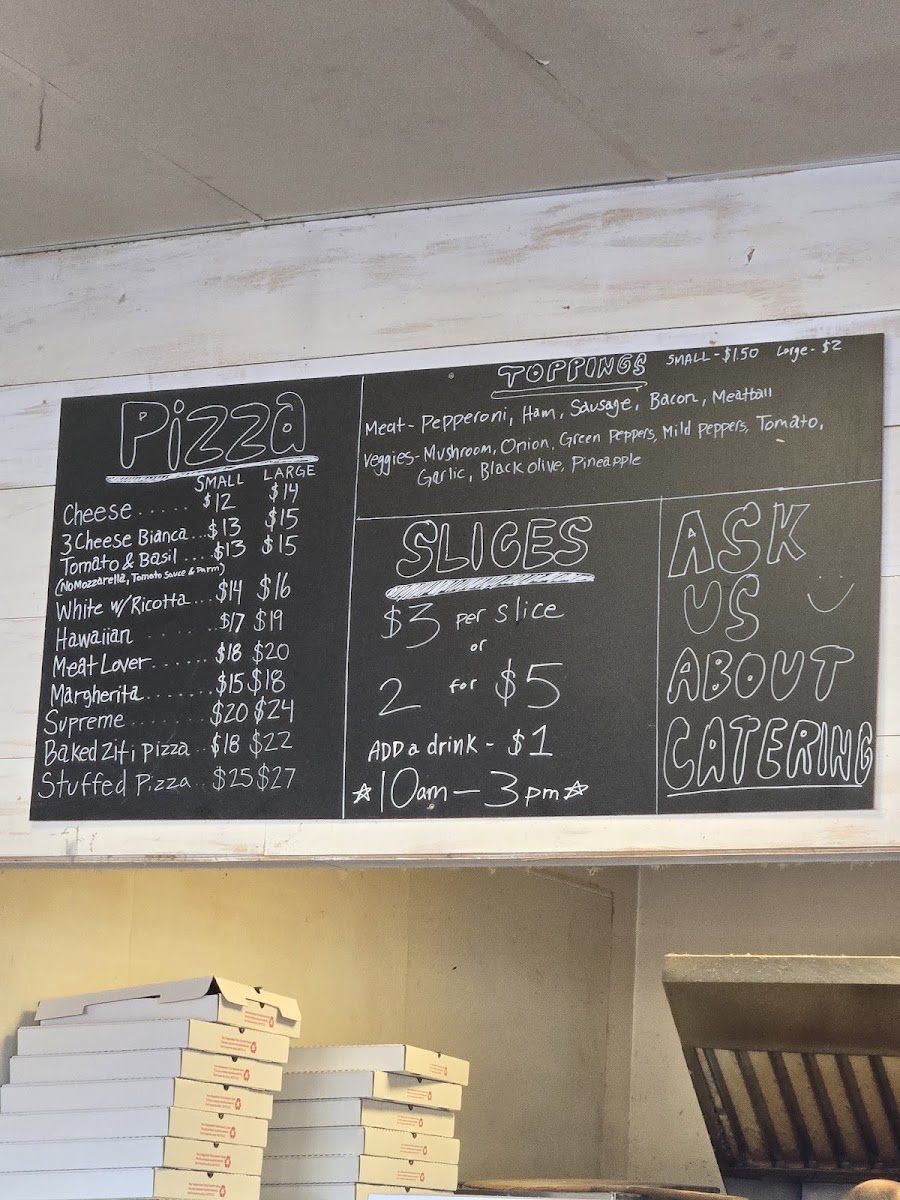 Pizza
SMALL LARGE
Cheese ...... $12 $14
3 Cheese Bianca ... $13 $15
Tomato & Basil .... $13 $15
(No Mozzarella, Tomato Sauce & Parm)
White w/ Ricotta ... $14 $16
Hawaiian ....... $17 $19
Meat Lover ...... $18 $20
Margherita ....... $15 $18
Supreme ........ $20 $24
Baked Ziti Pizza .. $18 $22
Stuffed Pizza .. $25 $27
TOPPINGS SMALL - $1.50 Large - $2
Meat - Pepperoni, Ham, Sausage, Bacon, Meatball
Veggies - Mushroom, Onion, Green Peppers, Mild Peppers, Tomato,
Garlic, Black olive, Pineapple
SLICES
$3 per slice
or
2 for $5
ADD a drink - $1
☆ 10am — 3pm ☆
ASK
US
ABOUT
CATERING